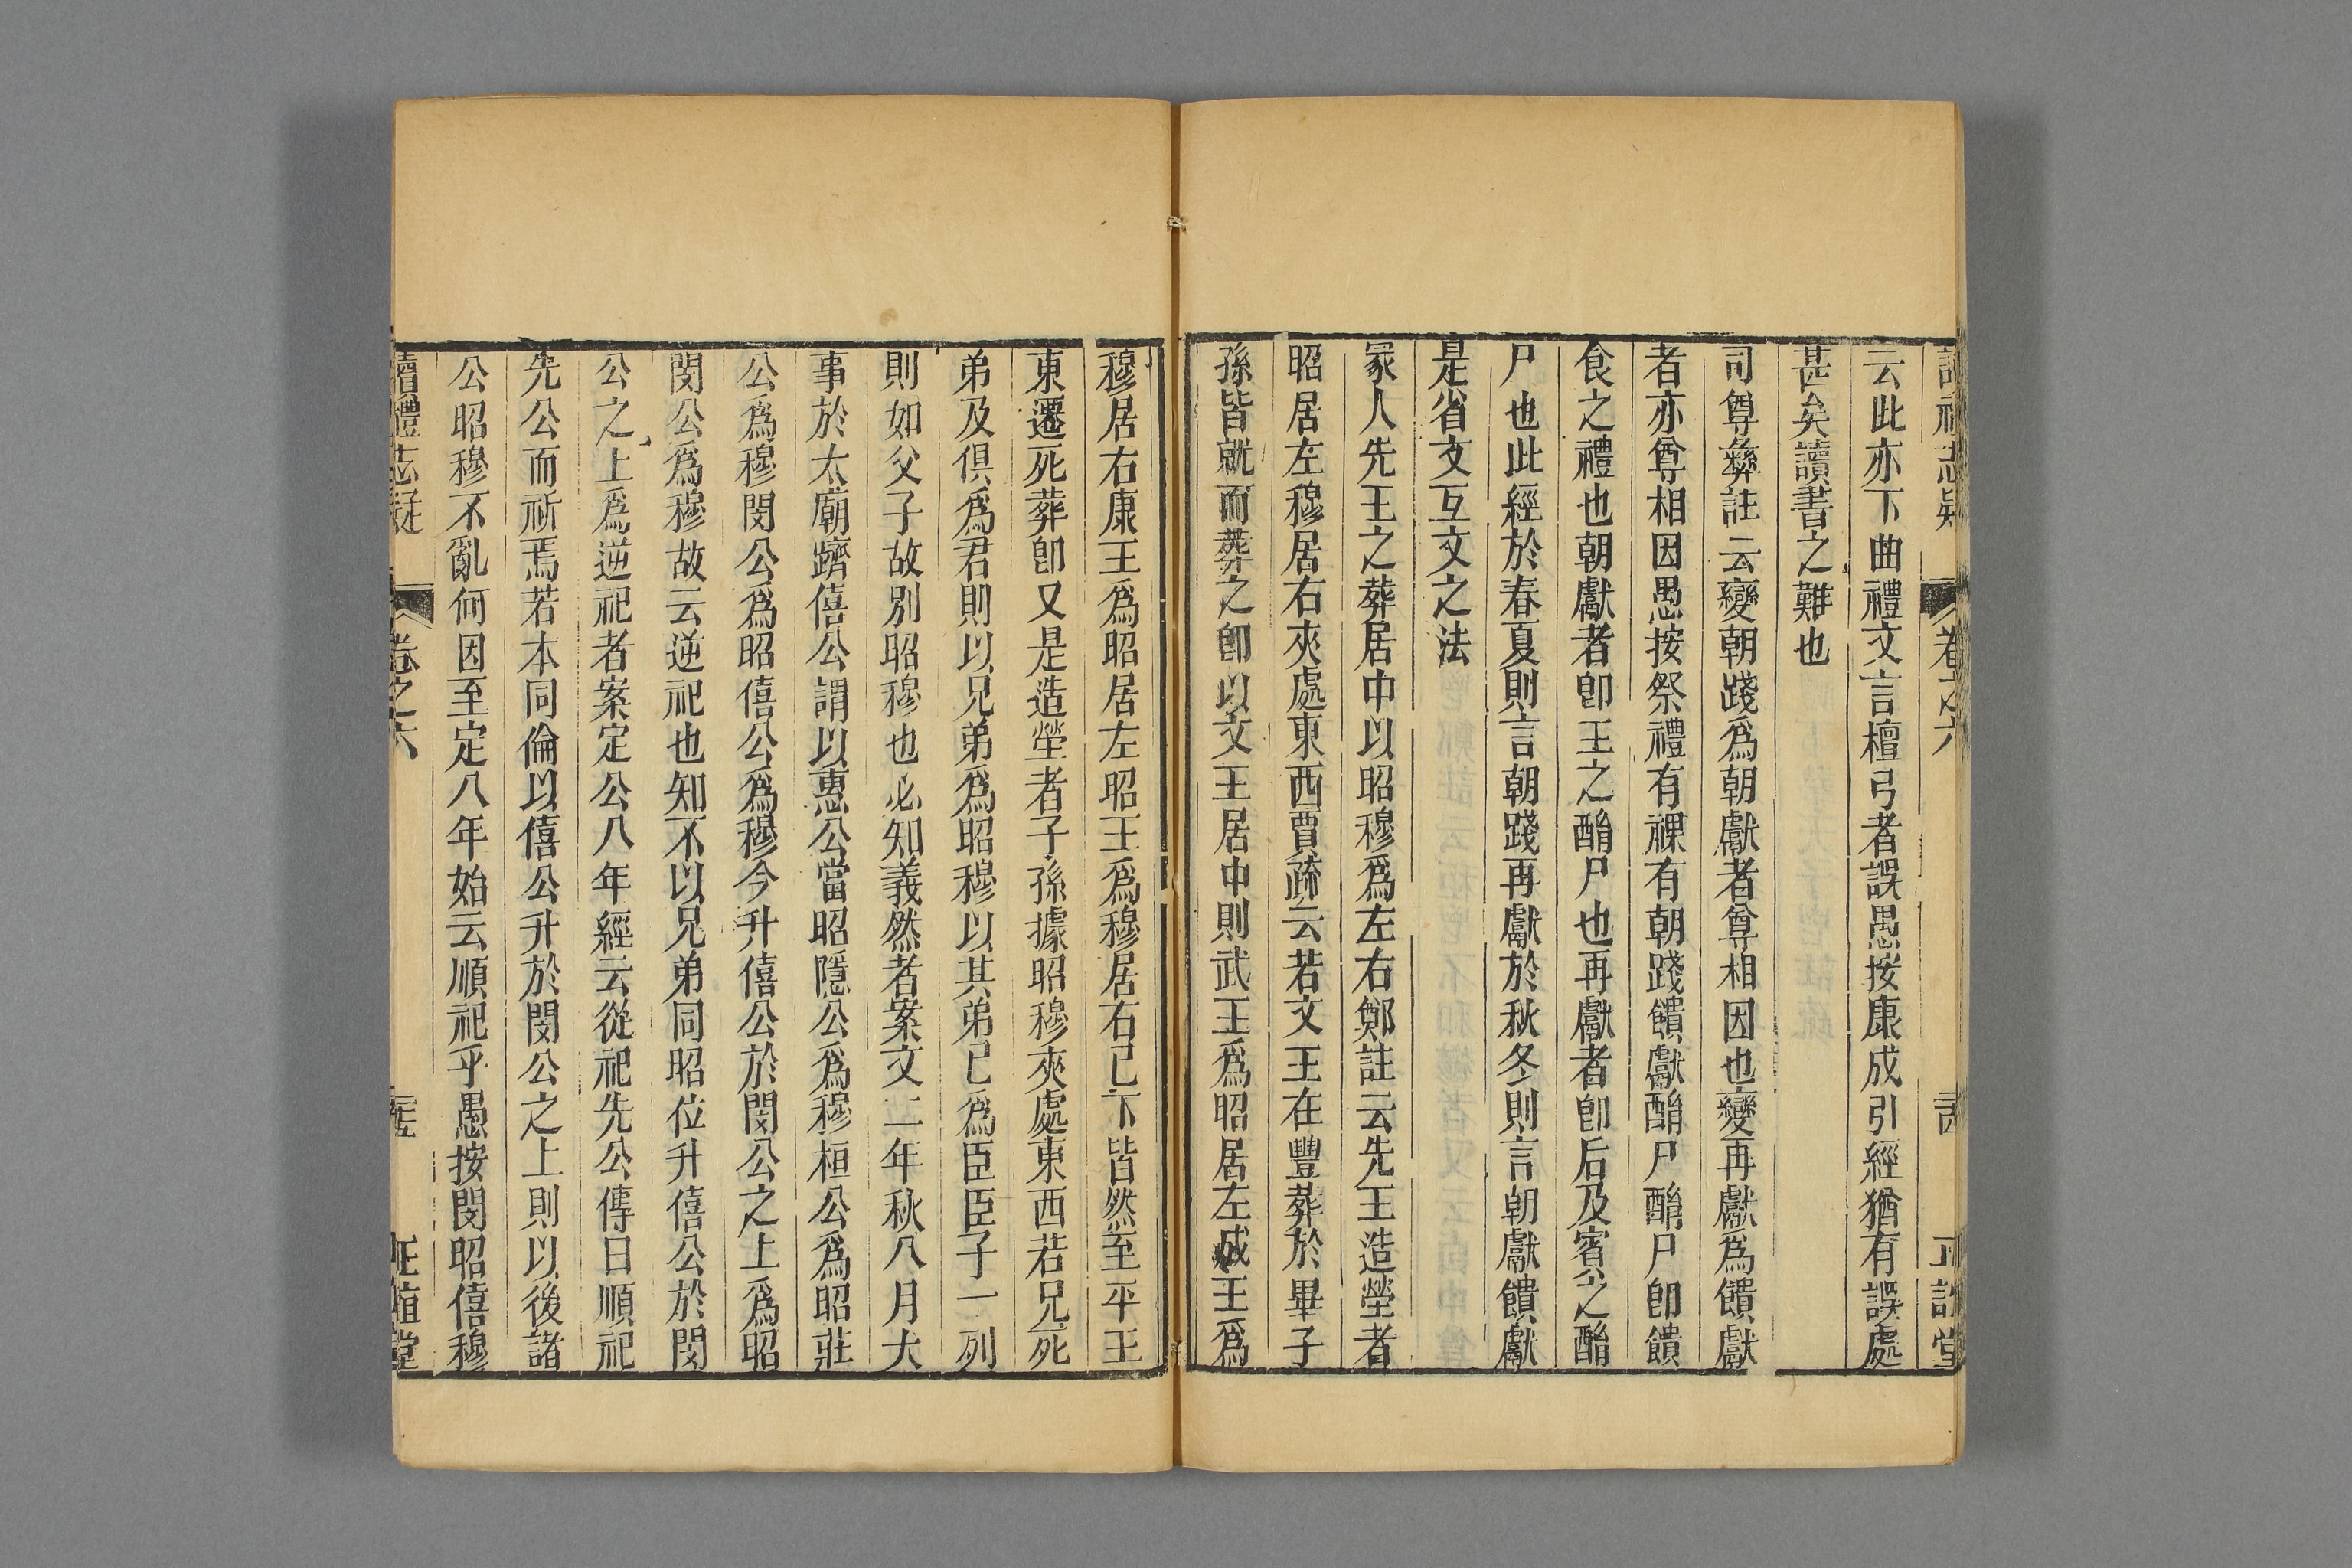 讀禮志疑 卷之六 正誼堂
云此亦下曲禮文言檀弓者誤愚按康成引經猶有誤處
甚矣讀書之難也
司尊彝註云變朝踐爲朝獻者尊相因也變再獻爲饋獻
者亦尊相因愚按祭禮有祼有朝踐饋獻酳尸酳尸卽饋
食之禮也朝獻者卽王之酳尸也再獻者卽后及賓之酳
尸也此經於春夏則言朝踐再獻於秋冬則言朝獻饋獻
是省文互文之法
冡人先王之葬居中以昭穆爲左右鄭註云先王造塋者
昭居左穆居右夾處東西賈疏云若文王在豐葬於畢子
孫皆就而葬之卽以文王居中則武王爲昭居左成王爲
穆居右康王爲昭居左昭王爲穆居右已下皆然至平王
東遷死葬卽又是造塋者子孫據昭穆夾處東西若兄死
弟及俱爲君則以兄弟爲昭穆以其弟已爲臣臣子一列
則如父子故别昭穆也必知義然者案文二年秋八月大
事於太廟躋僖公謂以惠公當昭隱公爲穆桓公爲昭莊
公爲穆閔公爲昭僖公爲穆今升僖公於閔公之上爲昭
閔公爲穆故云逆祀也知不以兄弟同昭位升僖公於閔
公之上爲逆祀者案定公八年經云從祀先公傳曰順祀
先公而祈焉若本同倫以僖公升於閔公之上則以後諸
公昭穆不亂何因至定八年始云順祀乎愚按閔昭僖穆
讀禮志疑 卷之六 正誼堂